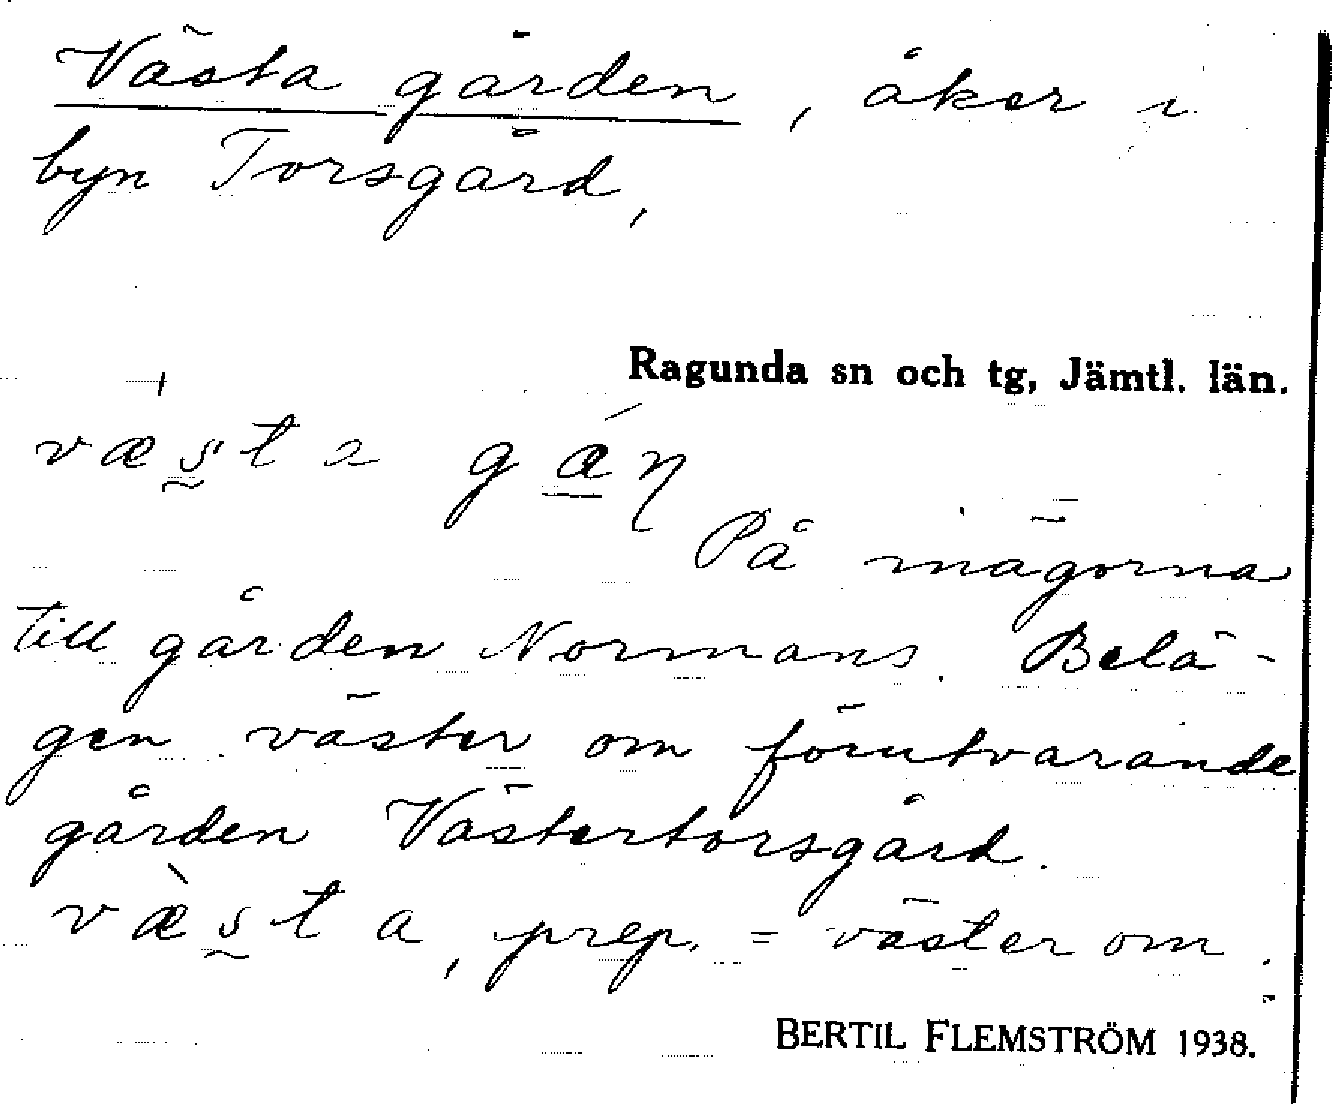 Västa gården, åker i
byn Torsgård,
Ragunda sn och tg, Jämtl. län.
væsta gáɳ
På inägorna
till gården Normans. Belä-
gen väster om förutvarande
gården Västertorsgård.
væ̀sta, prep. = väster om.
BERTIL FLEMSTRÖM 1938.